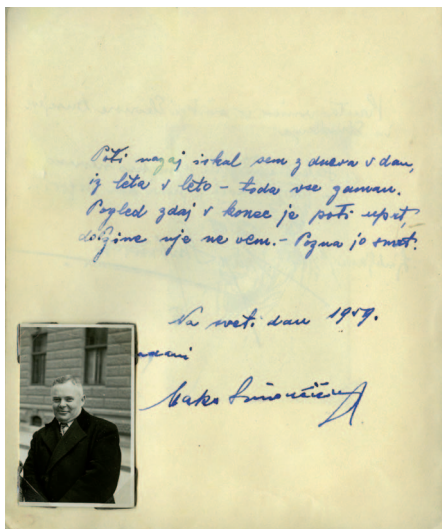 Poti nazaj iskal sem z dneva v dan,
iz leta v leto – toda vse zaman.
Pogled zdaj v konec je poti uprt,
dolžine nje ne vem. – Pozna jo smrt.
Na sveti dan 1959.